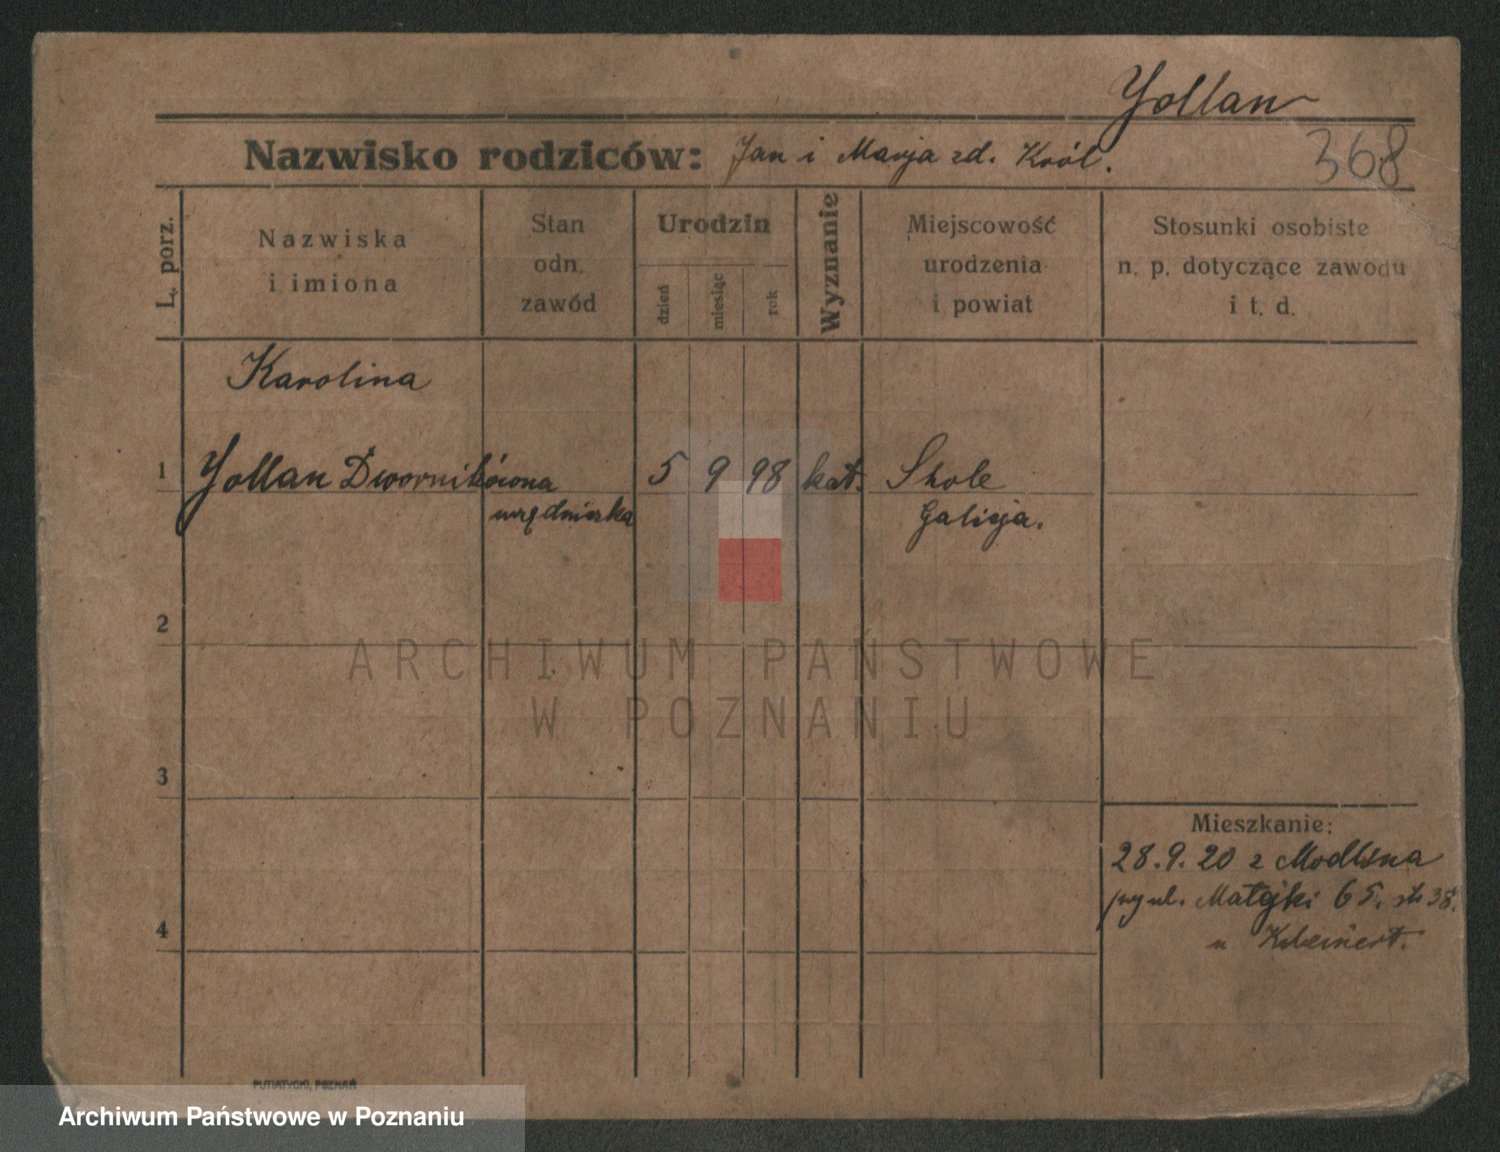 Yollan
Nazwisko rodziców: Jan i Marja zd. Król.
368
L. porz.
Nazwiska
i imiona
Stan
odn.
zawód
Urodzin
dzień
miesiąc
rok
Wyznanie
Miejscowość
urodzenia
i powiat
Stosunki osobiste
n. p. dotyczące zawodu
i t. d.
Karolina
1 Yollan Dwornikówna 5 9 98 kat. Skole
urzędniczka Galicja.
2
ARCHIWUM PAŃSTWOWE
W POZNANIU
3
Mieszkanie:
28.9.20 z
ul. Matejki 65.
4
u
PUTIATYCKI, POZNAŃ
Archiwum Państwowe w Poznaniu